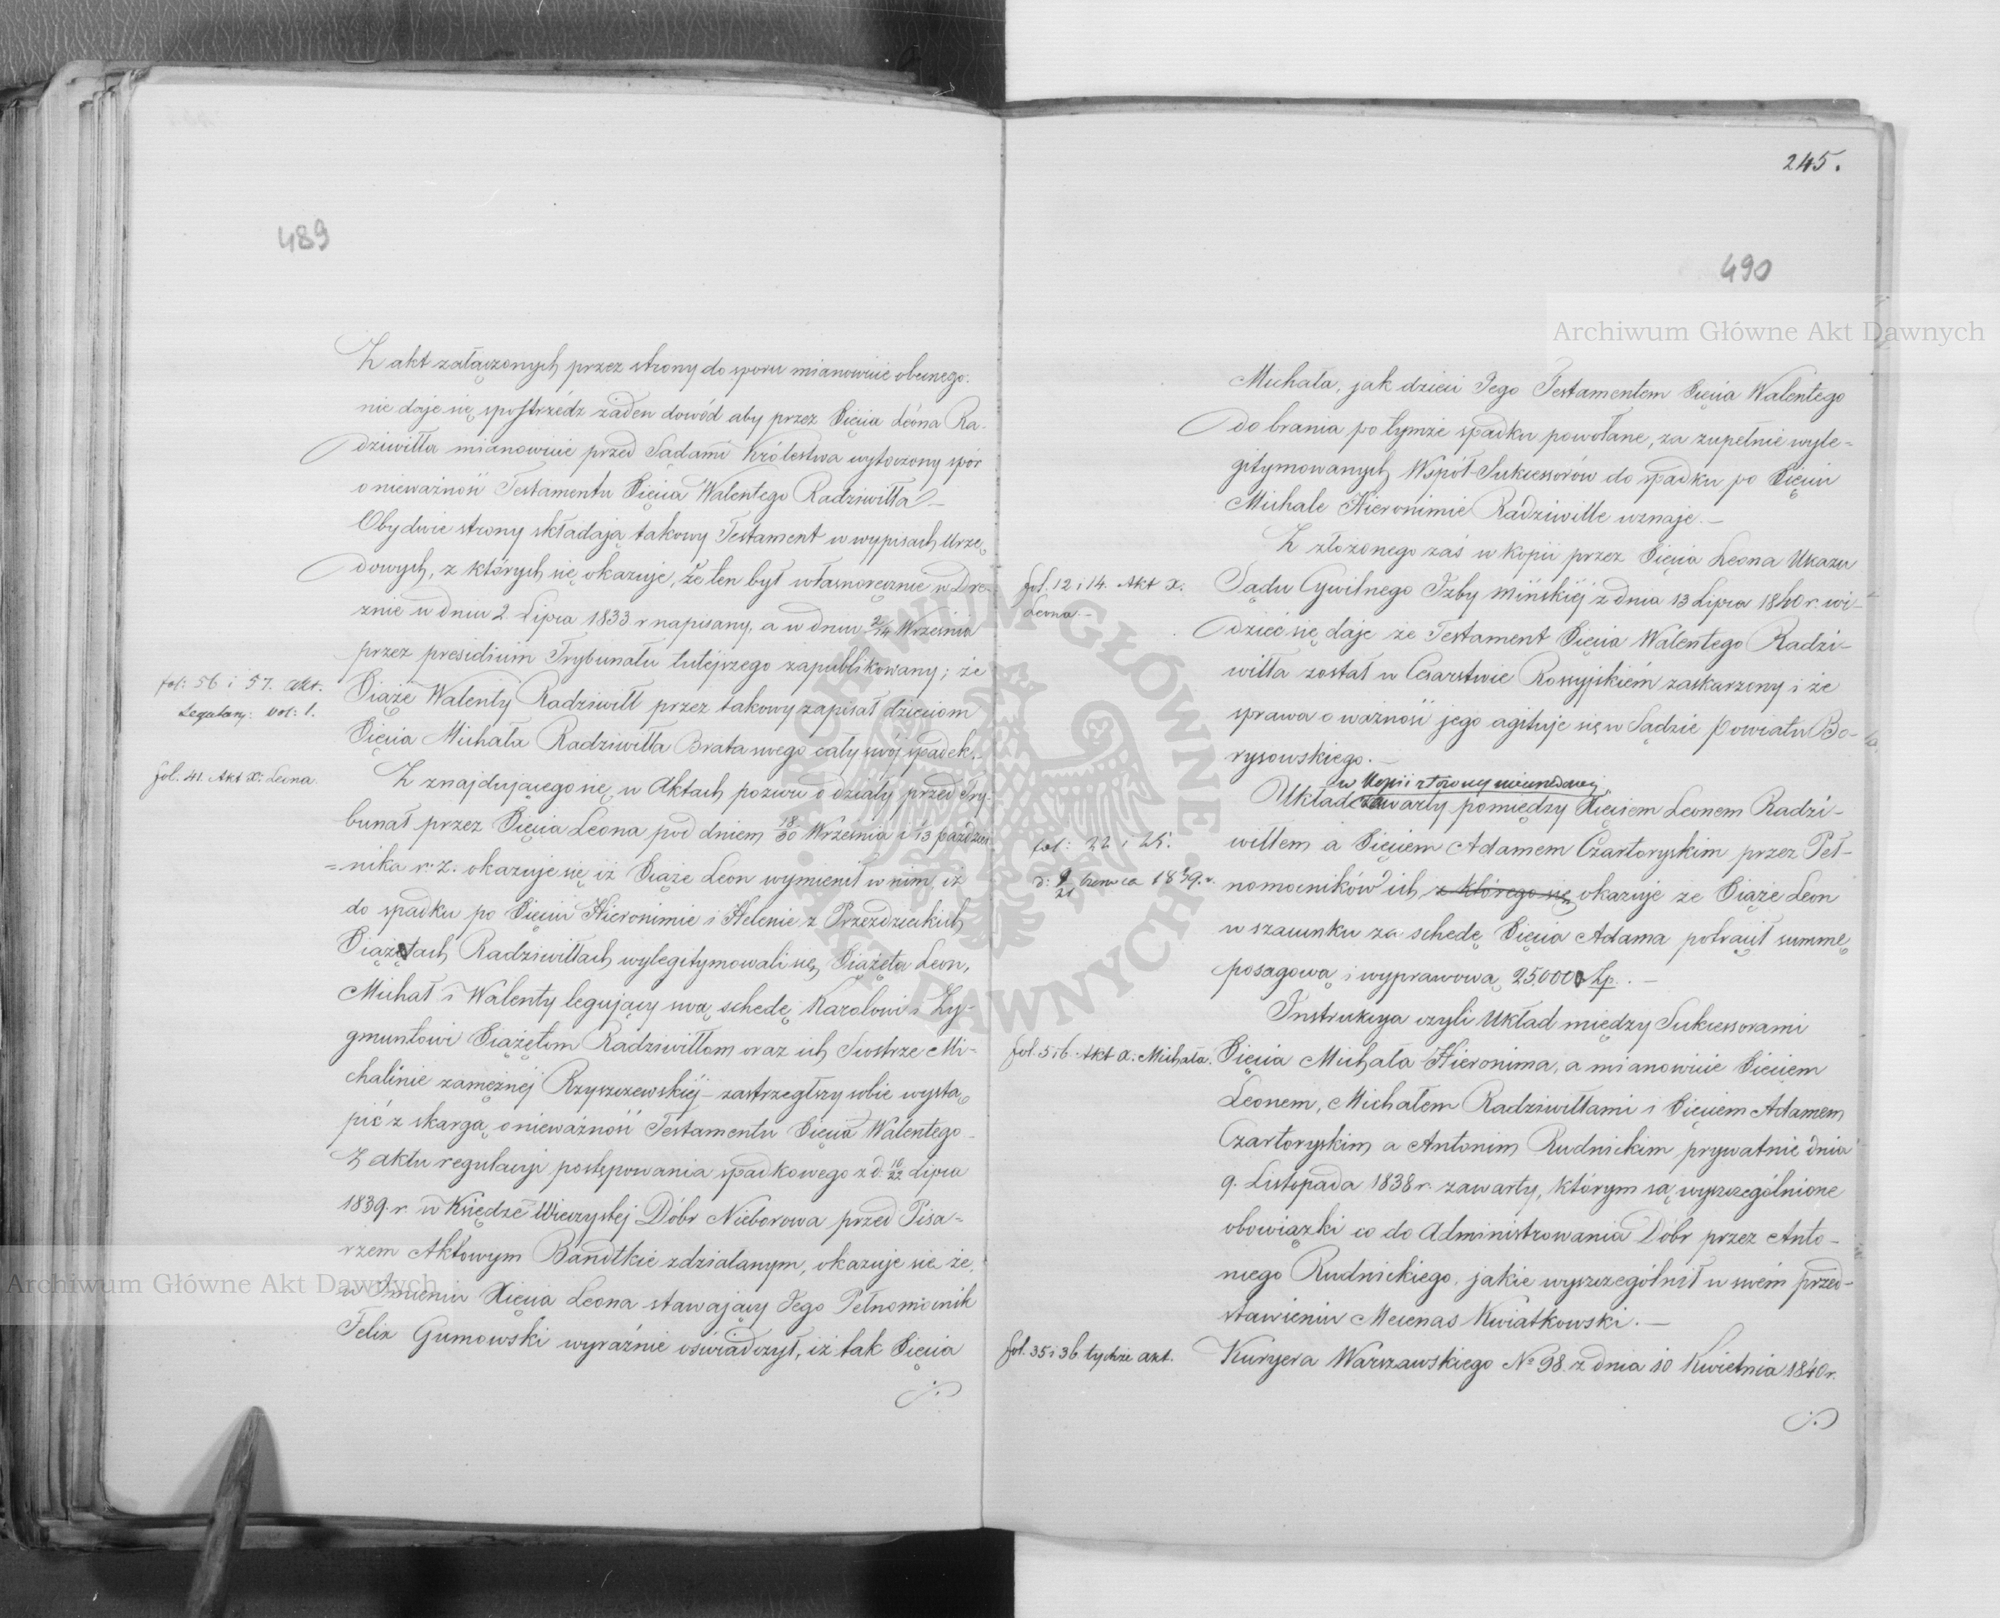 489
Z akt załączonych przez strony do sporu mianowicie obecnego
nie daje się spostrzédz żaden dowód aby przez Xięcia Leona Ra-
dziwiłła mianowicie przed Sądami Królestwa wytoczony spór
o nieważność Testamentu Xięcia Walentego Radziwiłła –
Obydwie strony składają takowy Testament w wypisach Urzę
dowych, z których się okazuje, że ten był własnoręcznie w Dre-
znie w dniu 2 Lipca 1833 r napisany, a w dniu 2/14 Września
przez presidium Trybunału tutejszego zapublikowany; że
fol: 56 i 57. akt.
Legatary: vol: 1.
Xiąże Walenty Radziwiłł przez takowy zapisał dzieciom
Xięcia Michała Radziwiłła Brata swego cały swój spadek. –
fol. 41. Akt X: Leona
Z znajdującego się w Aktach pozwu o działy przed Try-
bunał przez Xięcia Leona pod dniem 18/30 Września i 13 paździer
=nika r. z. okazuje się iż Xiąże Leon wymienił w nim iż
do spadku po Xięciu Hieronimie i Helenie z Przezdzieckich
Xiążętach Radziwiłłach wylegitymowali się, Xiążęta Leon,
Michał i Walenty legujący swą schedę Karolowi i Zy-
gmuntowi Xiążętom Radziwiłłom oraz ich Siostrze Mi-
chalinie zamężnéj Rzyszczewskiéj – zastrzegłszy sobie wystą
pić z skargą o nieważność Testamentu Xięcia Walentego
Z aktu regulacyi postępowania spadkowego z d. 10/22 Lipca
1839. r. w Księdze Wieczystej Dóbr Nieborowa przed Pisa-
rzem Aktowym Bandtkie zdziałanym, okazuje się że
w Imieniu Xięcia Leona stawający Jego Pełnomocnik
Felix Gumowski wyraźnie oświadczył, iż tak Xięcia
245.
490
Michała, jak dzieci Jego Testamentem Xięcia Walentego
do brania po tymże spadku powołane, za zupełnie wyle=
gitymowanych Współ-Sukcessorów do spadku po Xięciu
Michale Hieronimie Radziwille uznaje. –
Z złożonego zaś w kopii przez Xięcia Leona Ukazu
fol. 12 i 14. Akt X.
Leona –
Sądu Cywilnego Izby Mińskiéj z dnia 13 Lipca 1840 r. wi-
dzieć się daje że Testament Xięcia Walentego Radzi-
wiłła został w Cesarstwie Rossyjskiém zaskarzony i że
sprawa o ważność jego agituje się w Sądzie Powiatu Bo-
rysowskiego. –
w Kopii
Układ zawarty pomiędzy Xięciem Leonem Radzi-
fol: 22 i 25.
d: 9/21 Czerwca 1839. r.
wiłłem a Xięciem Adamem Czartoryskim przez Peł-
nomocników ich z którego się okazuje że Xiąże Leon
w szacunku za schedę Xięcia Adama potrącił summę
posagową i wyprawową 25.000 Zp. . –
Instrukcya czyli Układ między Sukcessorami
fol. 5 i 6. Akt X: Michała.
Xięcia Michała Hieronima, a mianowicie Xięciem
Leonem, Michałem Radziwiłłami i Xięciem Adamem
Czartoryskim a Antonim Rudnickim prywatnie dnia
9. Listopada 1838 r. zawarty, którym są wyszczególnione
obowiązki co do Administrowania Dóbr przez Anto-
niego Rudnickiego, jakie wyszczególnił w swém przed-
stawieniu Mecenas Kwiatkowski. –
fol. 35 i 36 tychże akt.
Kuryera Warszawskiego No 98. z dnia 10 Kwietnia 1840 r.
Archiwum Główne Akt Dawnych
Archiwum Główne Akt Dawnych
ARCHIWUM GŁÓWNE AKT DAWNYCH